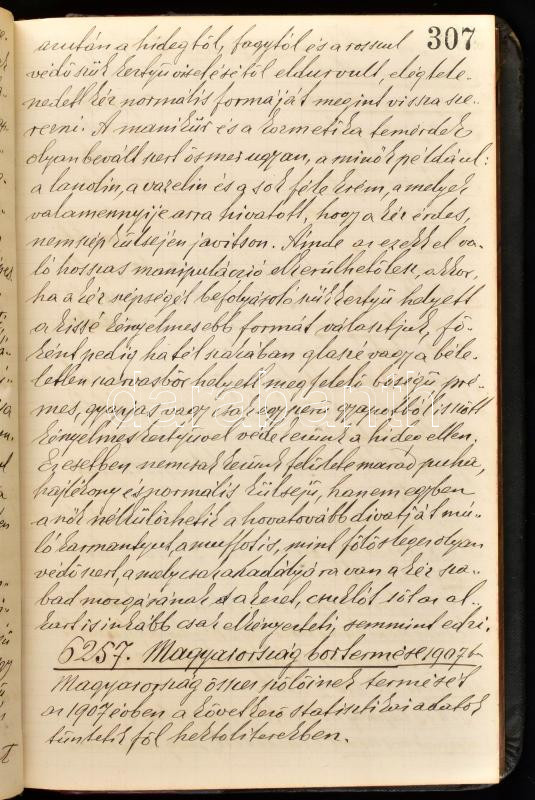 307
azután a hidegtől, fagytól és a rosszul
védő szűk kertyű viselésétől eldurvult, éktele-
nedett kéz normális formáját megint vissza sze-
rezni. A manikür és a kozmetika temérdek
olyan bevált szert ösmer ugyan, a minők például:
a lanolin, a vazelin és a sok féle krém, a melyek
valamennyije arra hivatott, hogy a kéz érdes,
nem szép külsején javitson. Ámde az ezekkel va-
ló hosszas manipuláczió elkerülhetőlesz, akkor,
ha a kéz szépségét befolyásoló szűk kertyű helyett
a kissé kényelmesebb formát választjuk, fő-
ként pedig ha tél szakában glaszé vagy a béle-
letlen szarvasbőr helyett megfelelő bőségű pré-
mes, gyapjas vagy csak egyszerű gyapotból is kötött
kényelmes kertyűvel védekezünk a hideg ellen.
Ez esetben nemcsak kezünk felülete marad puha,
hajlékony és normális külsejű, hanem egyben
a nők nélkülözhetik a hovatovább divatját mú-
ló karmantyut, a muffot is, mint fölösleges olyan
védőszert, a mely csak akadályára van a kéz sza-
bad mozgásának s a kezet, csuklót sőt az al-
kart is inkább csak elkényezteti, semmint edzi.
6257. Magyarország bortermése 1907 b
Magyarország összes szőlőinek termését
az 1907 évben a következő statisztikai adatok
tüntetik föl hektoliterekben.
darabanth